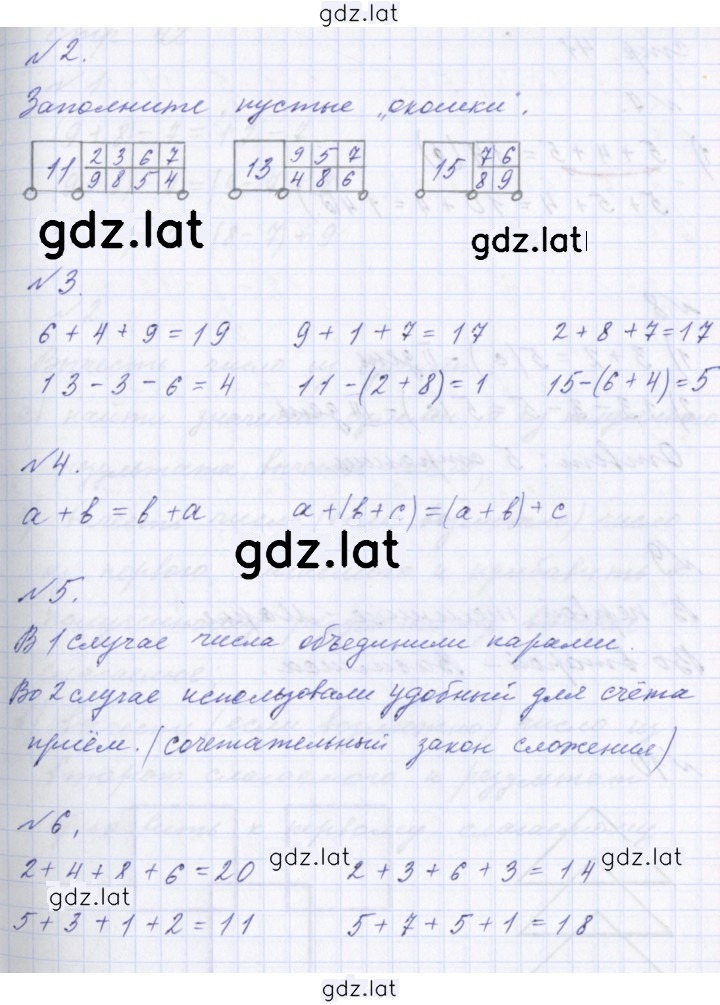 gdz.lat
№2.
Заполните пустые "окошки".
11 2 3 6 7 13 9 5 7 15 7 6
9 8 5 4 4 8 6 8 9
gdz.lat gdz.lat
№3.
6 + 4 + 9 = 19 9 + 1 + 7 = 17 2 + 8 + 7 = 17
13 - 3 - 6 = 4 11 - (2 + 8) = 1 15 - (6 + 4) = 5
№4.
а + в = в + а а + (в + с) = (а + в) + с
gdz.lat
№5.
В 1 случае числа объединили парами.
Во 2 случае использовали удобный для счёта
приём. (сочетательный закон сложения)
№6.
2 + 4 + 8 + 6 = 20 gdz.lat 2 + 3 + 6 + 3 = 14 gdz.lat
gdz.lat
5 + 3 + 1 + 2 = 11 5 + 7 + 5 + 1 = 18
gdz.lat